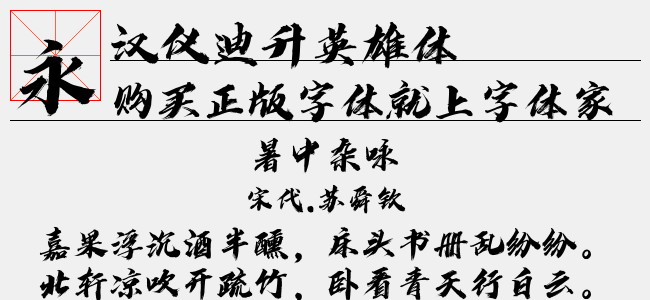 永
汉仪迪升英雄体
购买正版字体就上字体家
暑中杂咏
宋代.苏舜钦
嘉果浮沉酒半醺，床头书册乱纷纷。
北轩凉吹开疏竹，卧看青天行白云。